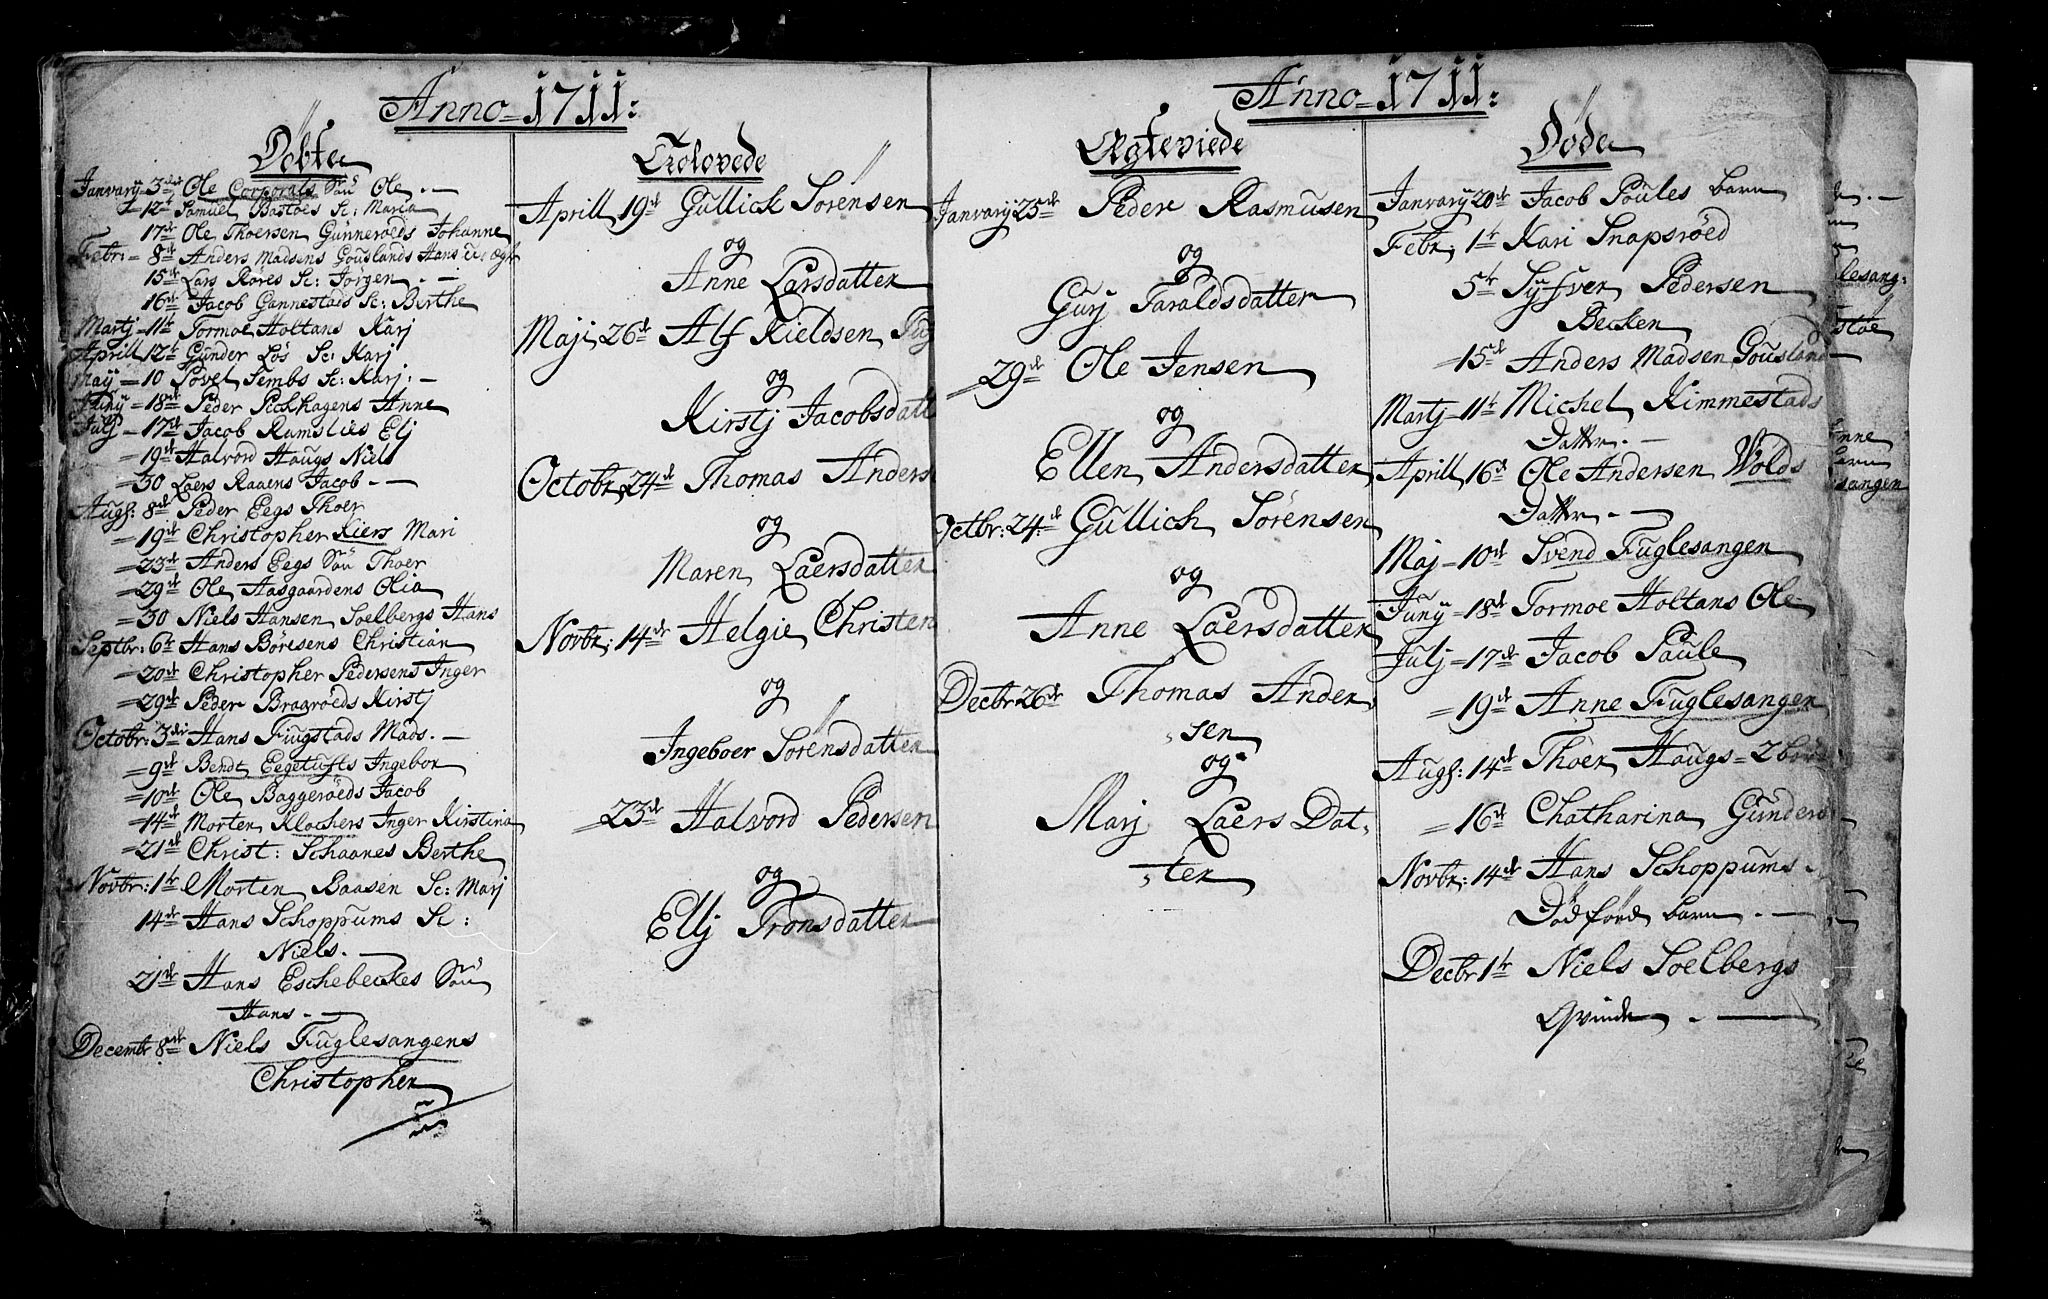 Anno 1711:
Döbte
January 3die Ole Corporals Søn Ole. —
12te Samuel Bastøes Sc: Maria
17de Ole Thoersen Gunnerøeds Johanne
Febr: = 8de Anders Madsens Gouslands Hans
15de Lars Røres Sc: Jørgen. —
16de Jacob Gannestads Sc: Berthe
Martj = 11te Tormoe Holtans Karj
Aprill 12te Gunder Løs Sc: Karj
May = 10 Povel Tembs Sc: Karj: —
Juny = 18de Peder Pickhagens Anne
Julj = 17de Jacob Ramslies Elj
= 19de Halvord Haugs Niels
= 30 Laers Raaens Jacob. —
Augs: 8de Peder Eegs Thoer
= 19de Christopher Kiers Mari
= 23de Anders Eegs Søn Thoer
= 29de Ole Aasgaardens Olia
= 30 Niels Hansen Soelbergs Hans
Septbr: 6te Hans Böresens Christian
= 20de Christopher Pedersens Inger
= 29de Peder Bragrøeds Kirstj
Octobr: 3die Hans Fiugstads Mads. —
= 9de Bendt Eegetufts Ingebor
= 10de Ole Baggerøeds Jacob
= 14de Morten Klochers Inger Kirstina
= 21de Christ: Schaanes Berthe
Novbr: 1te Morten Baasen Sc: Marj
14de Hans Schoppums Sc:
Niels. —
21de Hans Eschebeckes Søn
Hans. —
Decembr 8de Niels Fuglesangens
Christopher
Trolovede
Aprill 19de Gullick Sørensen
og
Anne Larsdatter
Maji 26de Alf Kieldsen
og
Kirstj Jacobsdatt
Octobr 24de Thomas Anders
og
Maren Laersdatter
Novbr: 14de Helgie Christen
og
Ingeboer Sørensdatter
= 23de Halvord Pedersen
og
Ellj Tronsdatter
Anno = 1711:
Ægteviede
January 25de Peder Rasmusen
og
Gurj Taraldsdatter
= 29de Ole Jensen
og
Ellen Andersdatter
Octbr: 24de Gullich Sørensen
og
Anne Laersdatter
Decbr 26de Thomas Ander,
,sen
og
Marj Laers Dat,
,ter
Døde
January 20de Jacob Poules barn
Febr: 1te Kari Snapsrøed
5te Syfver Pedersen
Becken
= 15de Anders Madsen Gousland
Martj = 11te Michel Kimmestads
Datter. —
Aprill 16de Ole Andersen Wolds
Datter. —
Maj = 10de Svend Fuglesangen
Juny = 18de Tormoe Holtans Ole
Julj = 17de Jacob Paule
= 19de Anne Fuglesangen
Augs: 14de Thoer Haugs = 2 børn
= 16de Chatharina Gunders
Novbr: 14de Hans Schoppums
Dødførd barn. —
Decbr 1te Niels Soelbergs
Qvinde. —